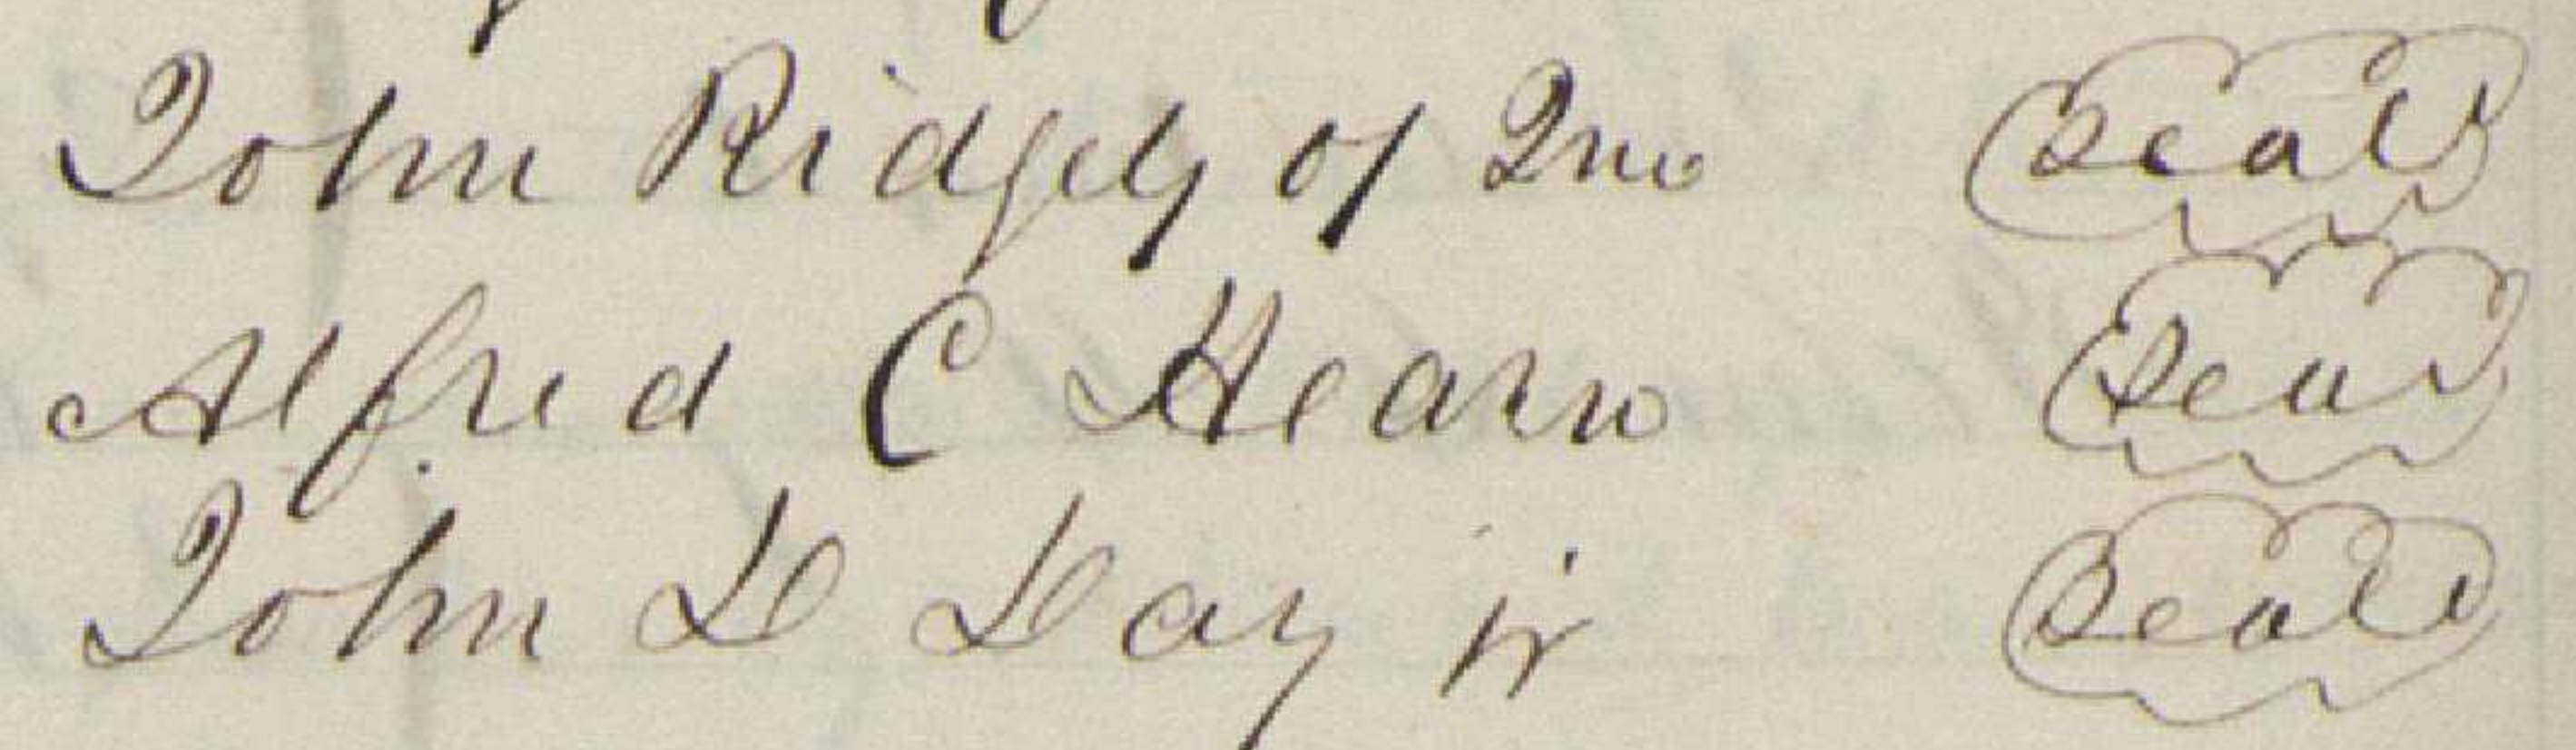 John Ridgely of Jno Seal
Alfred C Hearn Seal
John D Day jr Seal